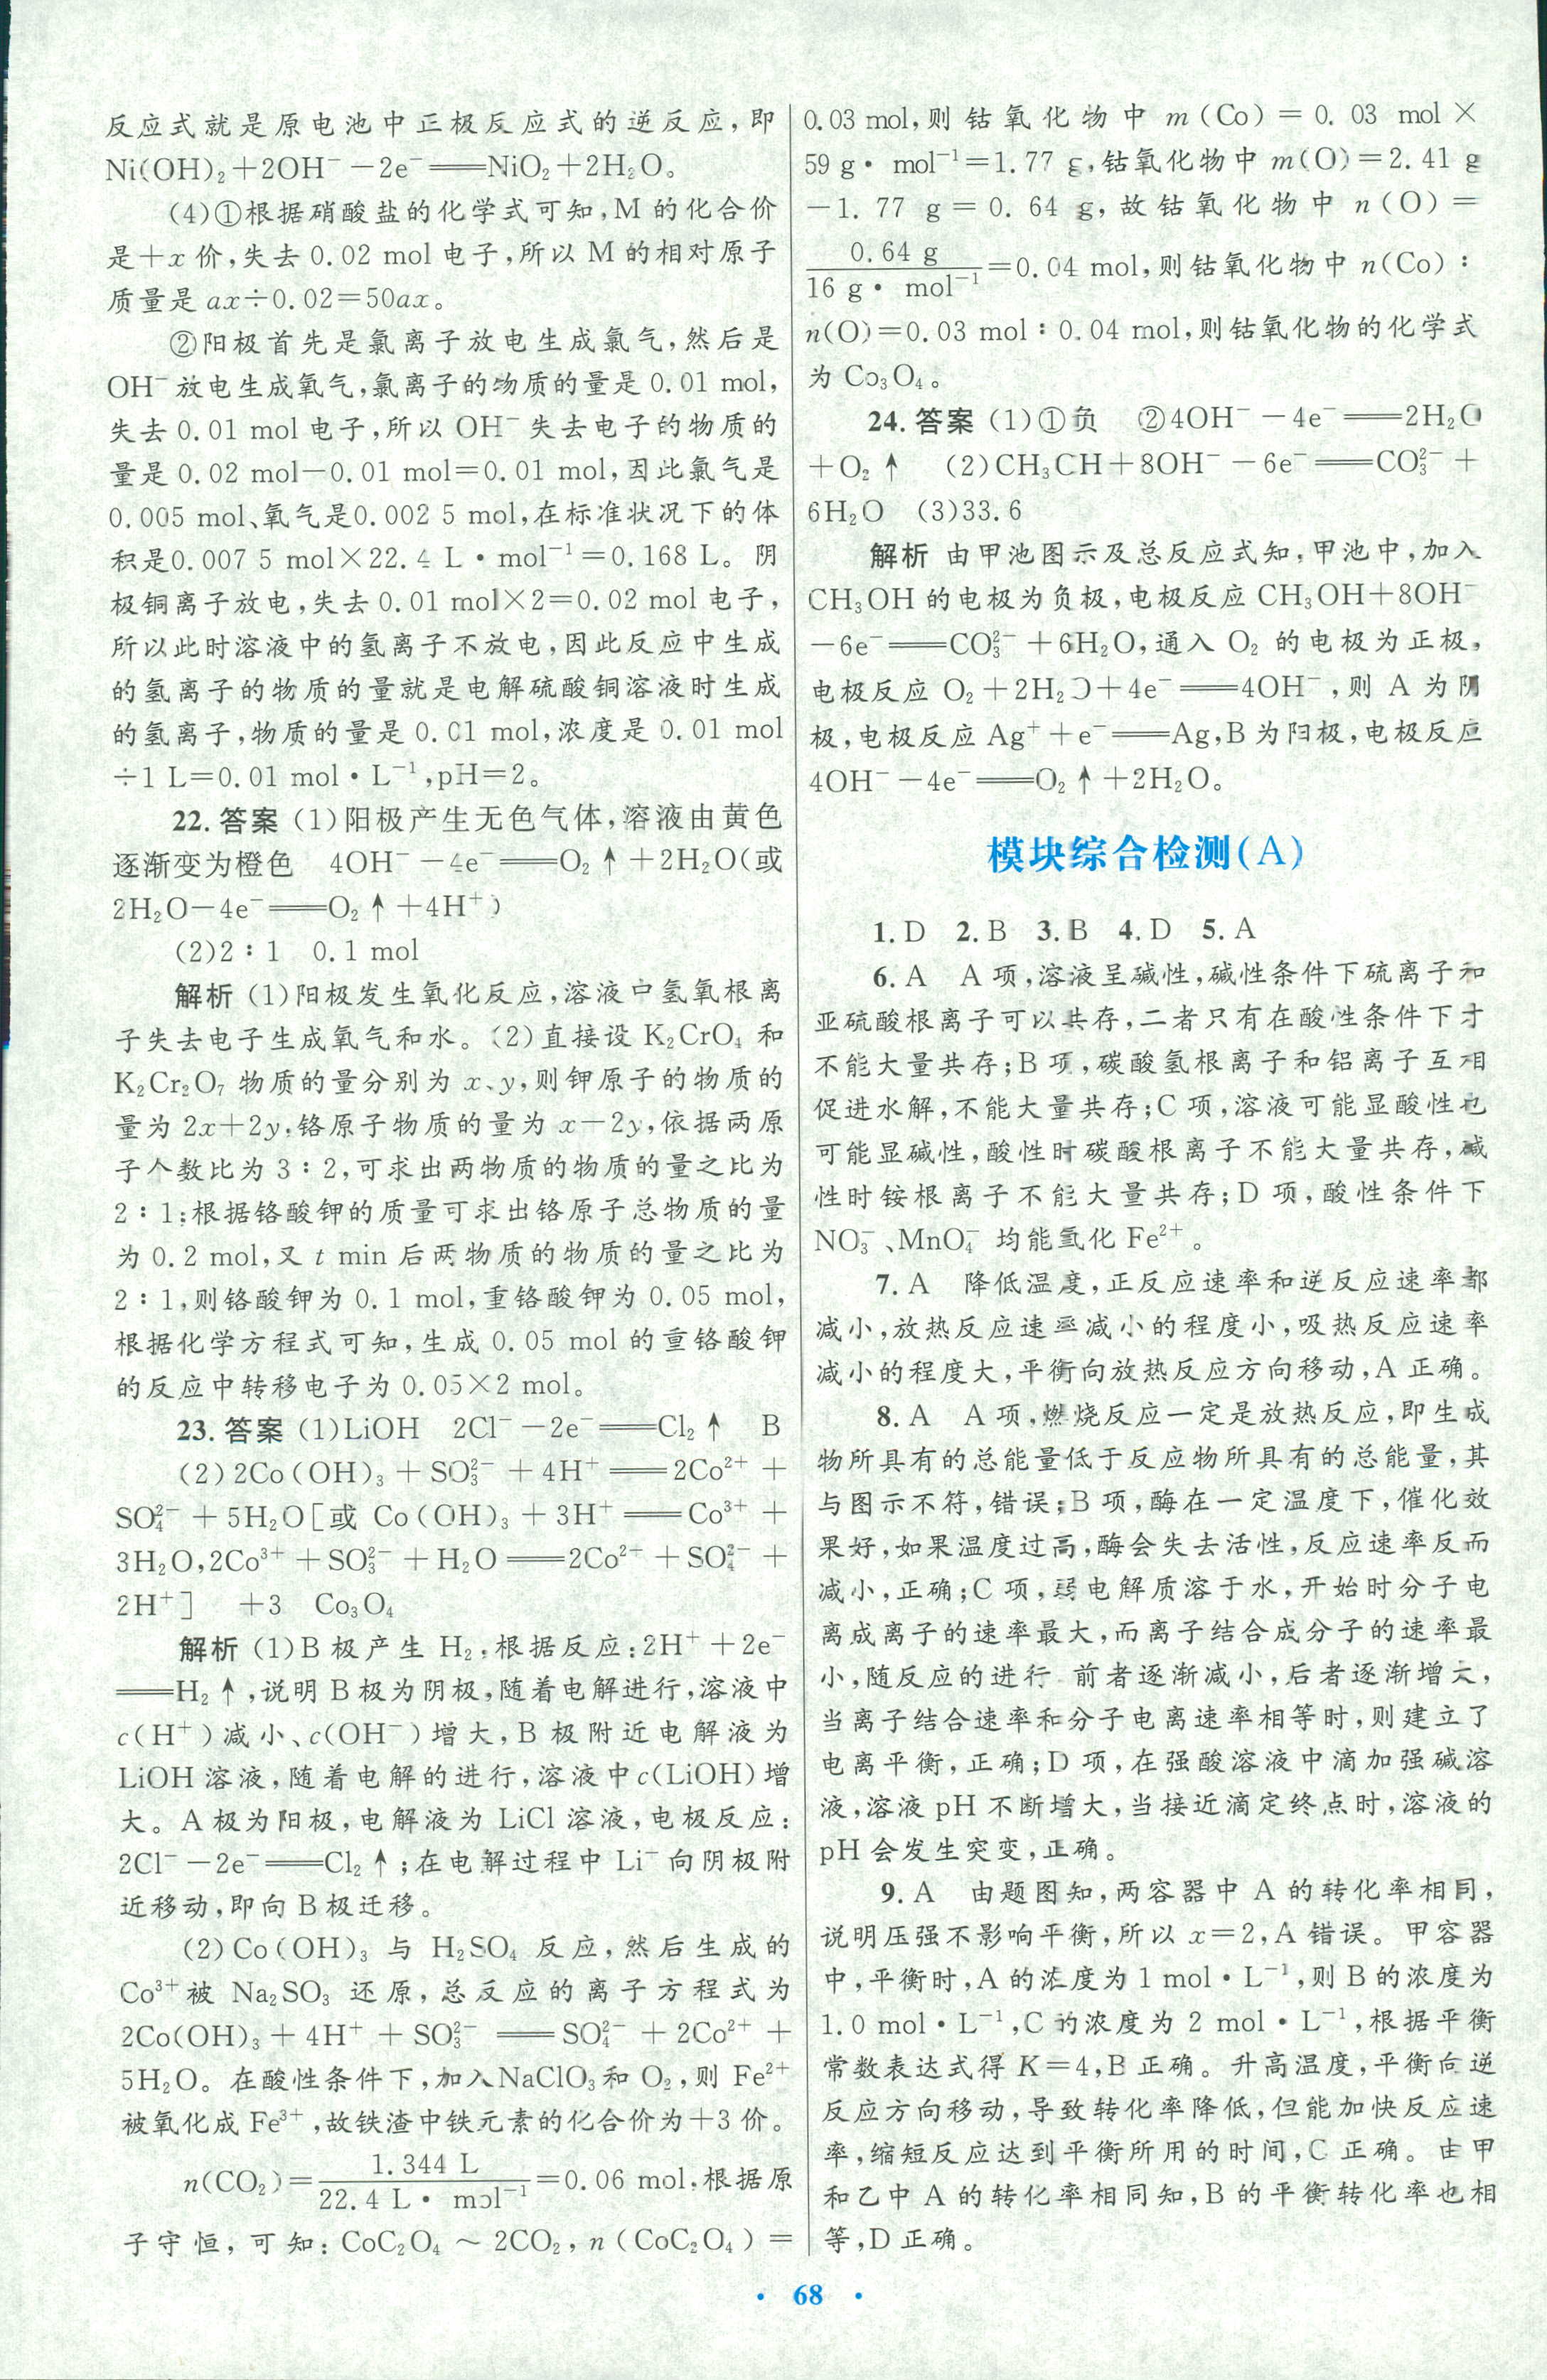 反应式就是原电池中正极反应式的逆反应,即
Ni(OH)₂+2OH⁻－2e⁻══NiO₂+2H₂O。
(4)①根据硝酸盐的化学式可知,M 的化合价
是+x 价,失去 0.02 mol 电子,所以 M 的相对原子
质量是 ax÷0.02=50ax。
②阳极首先是氯离子放电生成氯气,然后是
OH⁻ 放电生成氧气,氯离子的物质的量是 0.01 mol,
失去 0.01 mol 电子,所以 OH⁻ 失去电子的物质的
量是 0.02 mol－0.01 mol=0.01 mol,因此氯气是
0.005 mol、氧气是0.002 5 mol,在标准状况下的体
积是0.007 5 mol×22.4 L·mol⁻¹=0.168 L。阴
极铜离子放电,失去 0.01 mol×2=0.02 mol 电子,
所以此时溶液中的氢离子不放电,因此反应中生成
的氢离子的物质的量就是电解硫酸铜溶液时生成
的氢离子,物质的量是 0.01 mol,浓度是 0.01 mol
÷1 L=0.01 mol·L⁻¹,pH=2。
22. 答案 (1)阳极产生无色气体,溶液由黄色
逐渐变为橙色 4OH⁻－4e⁻══O₂↑+2H₂O(或
2H₂O－4e⁻══O₂↑+4H⁺)
(2)2∶1 0.1 mol
解析 (1)阳极发生氧化反应,溶液中氢氧根离
子失去电子生成氧气和水。(2)直接设 K₂CrO₄ 和
K₂Cr₂O₇ 物质的量分别为 x、y,则钾原子的物质的
量为 2x+2y,铬原子物质的量为 x－2y,依据两原
子个数比为 3∶2,可求出两物质的物质的量之比为
2∶1;根据铬酸钾的质量可求出铬原子总物质的量
为 0.2 mol,又 t min 后两物质的物质的量之比为
2∶1,则铬酸钾为 0.1 mol,重铬酸钾为 0.05 mol,
根据化学方程式可知,生成 0.05 mol 的重铬酸钾
的反应中转移电子为 0.05×2 mol。
23. 答案 (1)LiOH 2Cl⁻－2e⁻══Cl₂↑ B
(2)2Co(OH)₃+SO₃²⁻+4H⁺══2Co²⁺+
SO₄²⁻+5H₂O[或 Co(OH)₃+3H⁺══Co³⁺+
3H₂O,2Co³⁺+SO₃²⁻+H₂O══2Co²⁺+SO₄²⁻+
2H⁺] +3 Co₃O₄
解析 (1)B 极产生 H₂,根据反应:2H⁺+2e⁻
══H₂↑,说明 B 极为阴极,随着电解进行,溶液中
c(H⁺)减小、c(OH⁻)增大,B 极附近电解液为
LiOH 溶液,随着电解的进行,溶液中c(LiOH)增
大。A 极为阳极,电解液为 LiCl 溶液,电极反应:
2Cl⁻－2e⁻══Cl₂↑;在电解过程中 Li⁻向阴极附
近移动,即向 B 极迁移。
(2)Co(OH)₃ 与 H₂SO₄ 反应,然后生成的
Co³⁺被 Na₂SO₃ 还原,总反应的离子方程式为
2Co(OH)₃+4H⁺+SO₃²⁻══SO₄²⁻+2Co²⁺+
5H₂O。在酸性条件下,加入NaClO₃和 O₂,则 Fe²⁺
被氧化成 Fe³⁺,故铁渣中铁元素的化合价为+3 价。
n(CO₂)=1.344 L/22.4 L·mol⁻¹=0.06 mol,根据原
子守恒,可知:CoC₂O₄～2CO₂,n(CoC₂O₄)=
0.03 mol,则钴氧化物中 m(Co)=0.03 mol×
59 g·mol⁻¹=1.77 g,钴氧化物中 m(O)=2.41 g
－1.77 g=0.64 g,故钴氧化物中 n(O)=
0.64 g/16 g·mol⁻¹=0.04 mol,则钴氧化物中 n(Co)∶
n(O)=0.03 mol∶0.04 mol,则钴氧化物的化学式
为 Co₃O₄。
24. 答案 (1)①负 ②4OH⁻－4e⁻══2H₂O
+O₂↑ (2)CH₃CH+8OH⁻－6e⁻══CO₃²⁻+
6H₂O (3)33.6
解析 由甲池图示及总反应式知,甲池中,加入
CH₃OH 的电极为负极,电极反应 CH₃OH+8OH⁻
－6e⁻══CO₃²⁻+6H₂O,通入 O₂ 的电极为正极,
电极反应 O₂+2H₂O+4e⁻══4OH⁻,则 A 为阴
极,电极反应 Ag⁺+e⁻══Ag,B 为阳极,电极反应
4OH⁻－4e⁻══O₂↑+2H₂O。
模块综合检测(A)
1. D 2. B 3. B 4. D 5. A
6. A A 项,溶液呈碱性,碱性条件下硫离子和
亚硫酸根离子可以共存,二者只有在酸性条件下才
不能大量共存;B 项,碳酸氢根离子和铝离子互相
促进水解,不能大量共存;C 项,溶液可能显酸性也
可能显碱性,酸性时碳酸根离子不能大量共存,碱
性时铵根离子不能大量共存;D 项,酸性条件下
NO₃⁻、MnO₄⁻ 均能氧化 Fe²⁺。
7. A 降低温度,正反应速率和逆反应速率都
减小,放热反应速率减小的程度小,吸热反应速率
减小的程度大,平衡向放热反应方向移动,A 正确。
8. A A 项,燃烧反应一定是放热反应,即生成
物所具有的总能量低于反应物所具有的总能量,其
与图示不符,错误;B 项,酶在一定温度下,催化效
果好,如果温度过高,酶会失去活性,反应速率反而
减小,正确;C 项,弱电解质溶于水,开始时分子电
离成离子的速率最大,而离子结合成分子的速率最
小,随反应的进行 前者逐渐减小,后者逐渐增大,
当离子结合速率和分子电离速率相等时,则建立了
电离平衡,正确;D 项,在强酸溶液中滴加强碱溶
液,溶液 pH 不断增大,当接近滴定终点时,溶液的
pH 会发生突变,正确。
9. A 由题图知,两容器中 A 的转化率相同,
说明压强不影响平衡,所以 x=2,A 错误。甲容器
中,平衡时,A 的浓度为 1 mol·L⁻¹,则 B 的浓度为
1.0 mol·L⁻¹,C 的浓度为 2 mol·L⁻¹,根据平衡
常数表达式得 K=4,B 正确。升高温度,平衡向逆
反应方向移动,导致转化率降低,但能加快反应速
率,缩短反应达到平衡所用的时间,C 正确。由甲
和乙中 A 的转化率相同知,B 的平衡转化率也相
等,D 正确。
· 68 ·